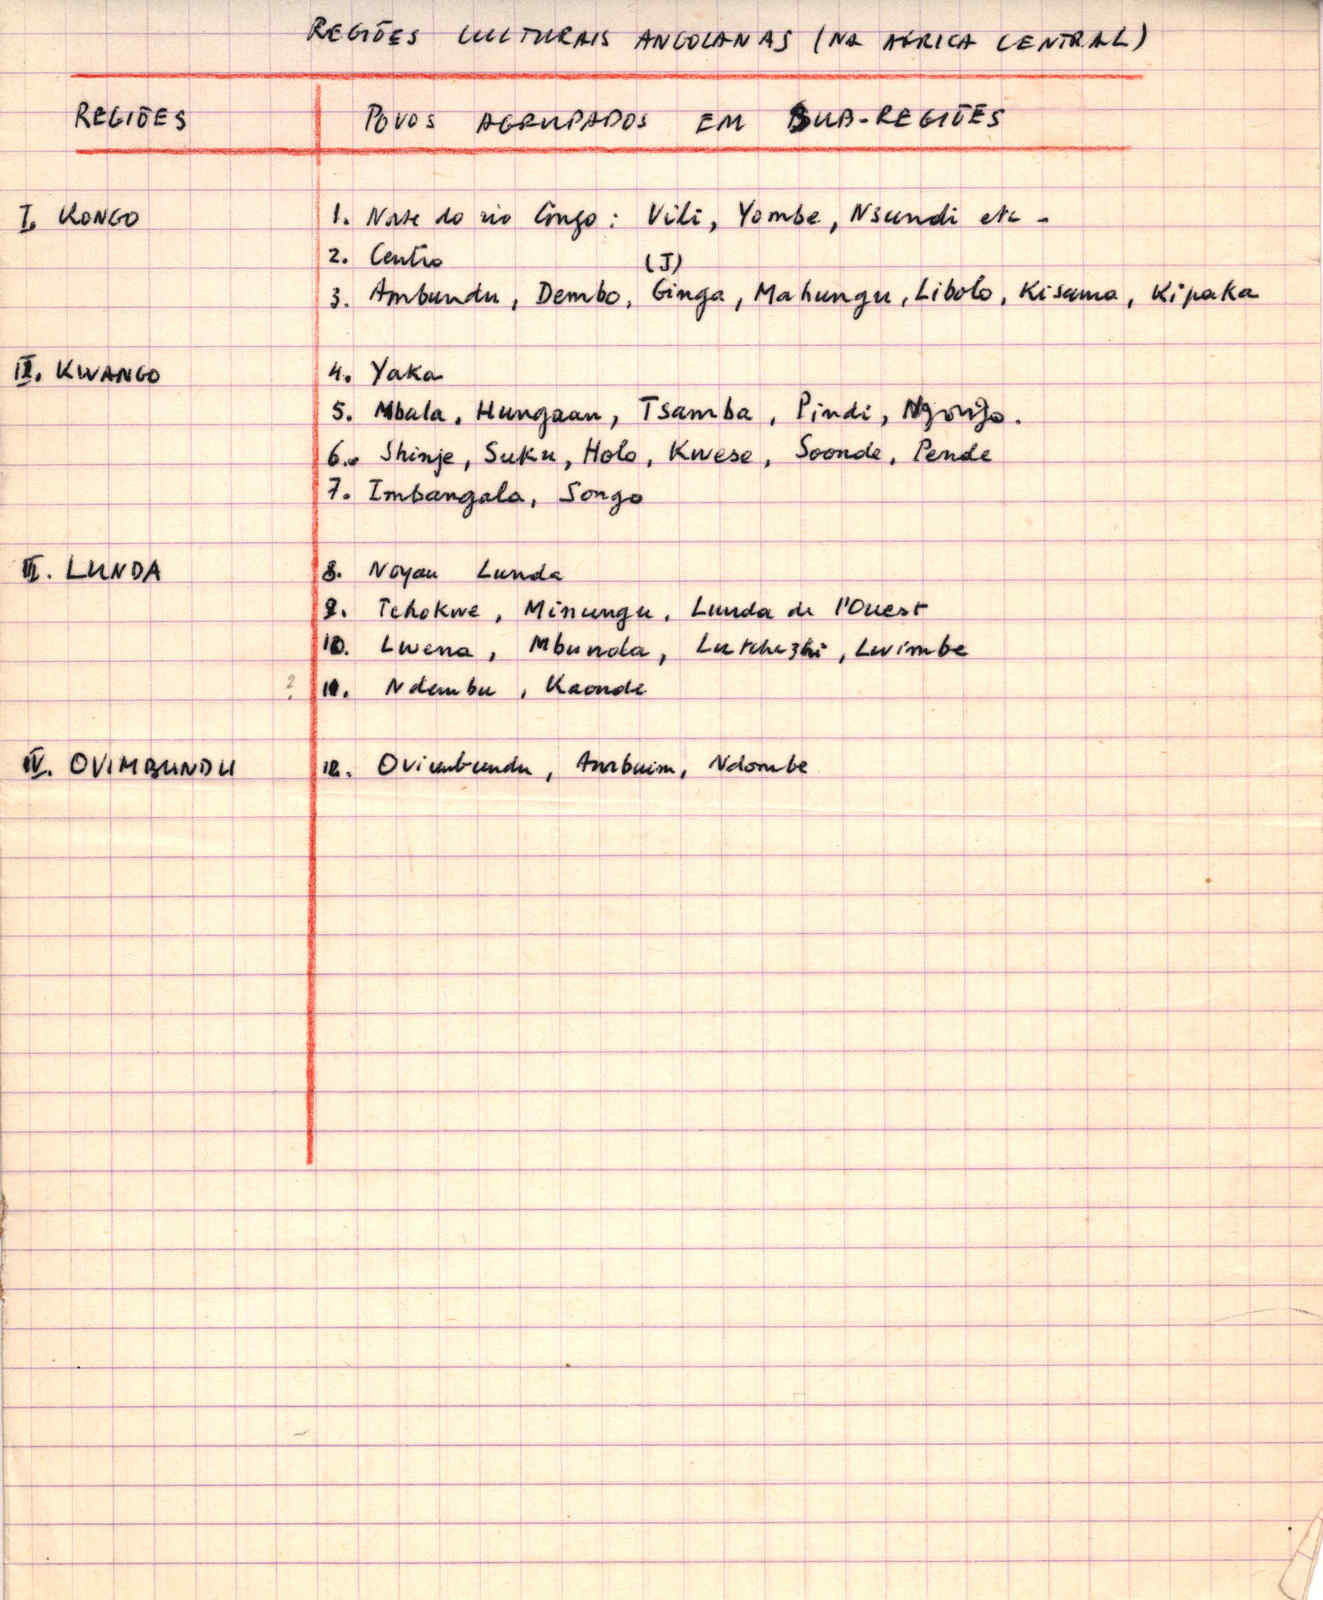 REGIÕES CULTURAIS ANGOLANAS (NA AFRICA CENTRAL)
REGIÕES POVOS AGRUPADOS EM SUB-REGIÕES
I. KONGO 1. Norte do rio Congo: Vili, Yombe, Nsundi etc -
2. Centro
(J)
3. Ambundu, Dembo, Ginga, Mahungu, Libolo, Kisama, Kipaka
II. KWANGO 4. Yaka
5. Mbala, Hungaan, Tsamba, Pindi, Ngongo.
6. Shinje, Suku, Holo, Kwese, Soonde, Pende
7. Imbangala, Songo
III. LUNDA 8. Noyau Lunda
9. Tchokwe, Minungu, Lunda de l'Ouest
10. Lwena, Mbunda, Lutchazhi, Lwimbe
? 11. Ndembu, Kaonde
IV. OVIMBUNDU 12. Ovimbundu, Ambuim, Ndombe